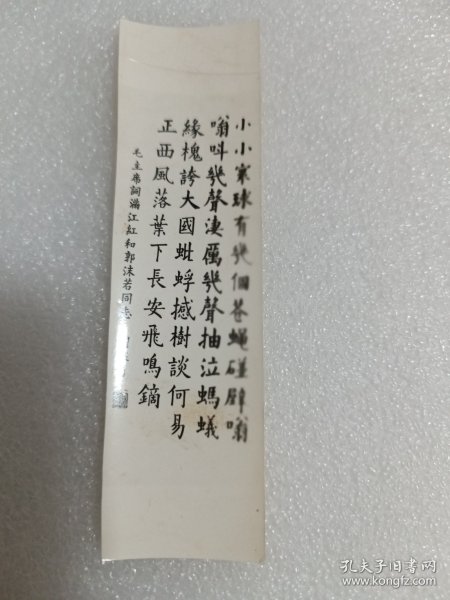 小小寰球有幾個蒼蠅碰壁嗡
嗡叫幾聲淒厲幾聲抽泣螞蟻
緣槐誇大國蚍蜉撼樹談何易
正西風落葉下長安飛鳴鏑
毛主席詞滿江紅和郭沫若同志
孔夫子旧书网
www.kongfz.com